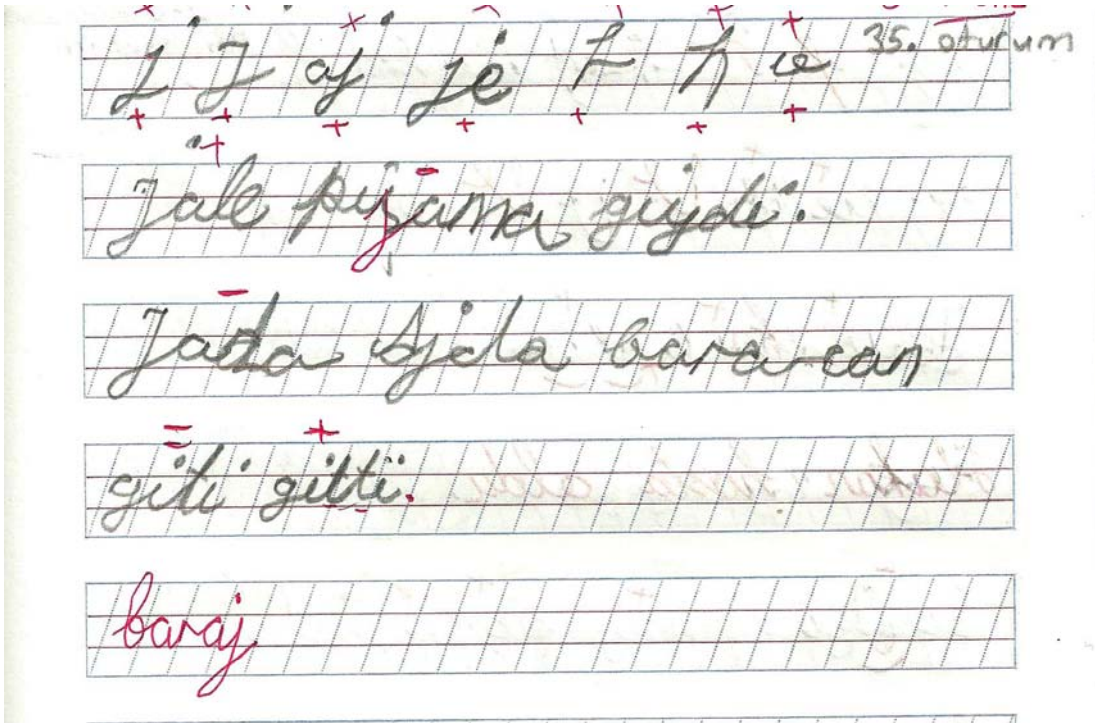 j J aj je h è 35. oturum
Jale pijama giydi.
Jada Ajda bara can
giti gitti.
baraj